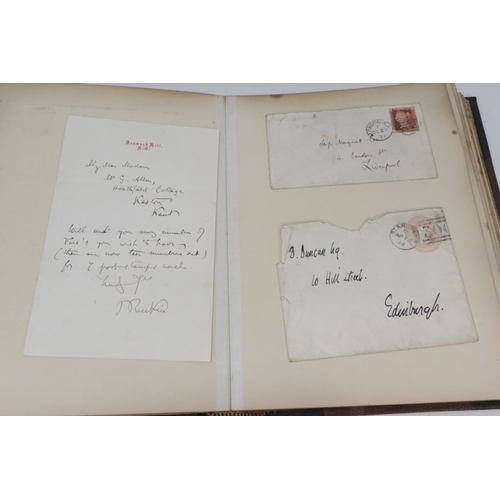 Denmark Hill,
S.E.
My dear Madam
Mr G. Allen,
Heathfield Cottage
Keston
Kent
Will send you any number of
you wish to have
(there are now ten numbers out)
for 7
J Ruskin
Miss Margaret
Liverpool
D. Duncan Esq.
10 Hill Street.
Edinburgh.